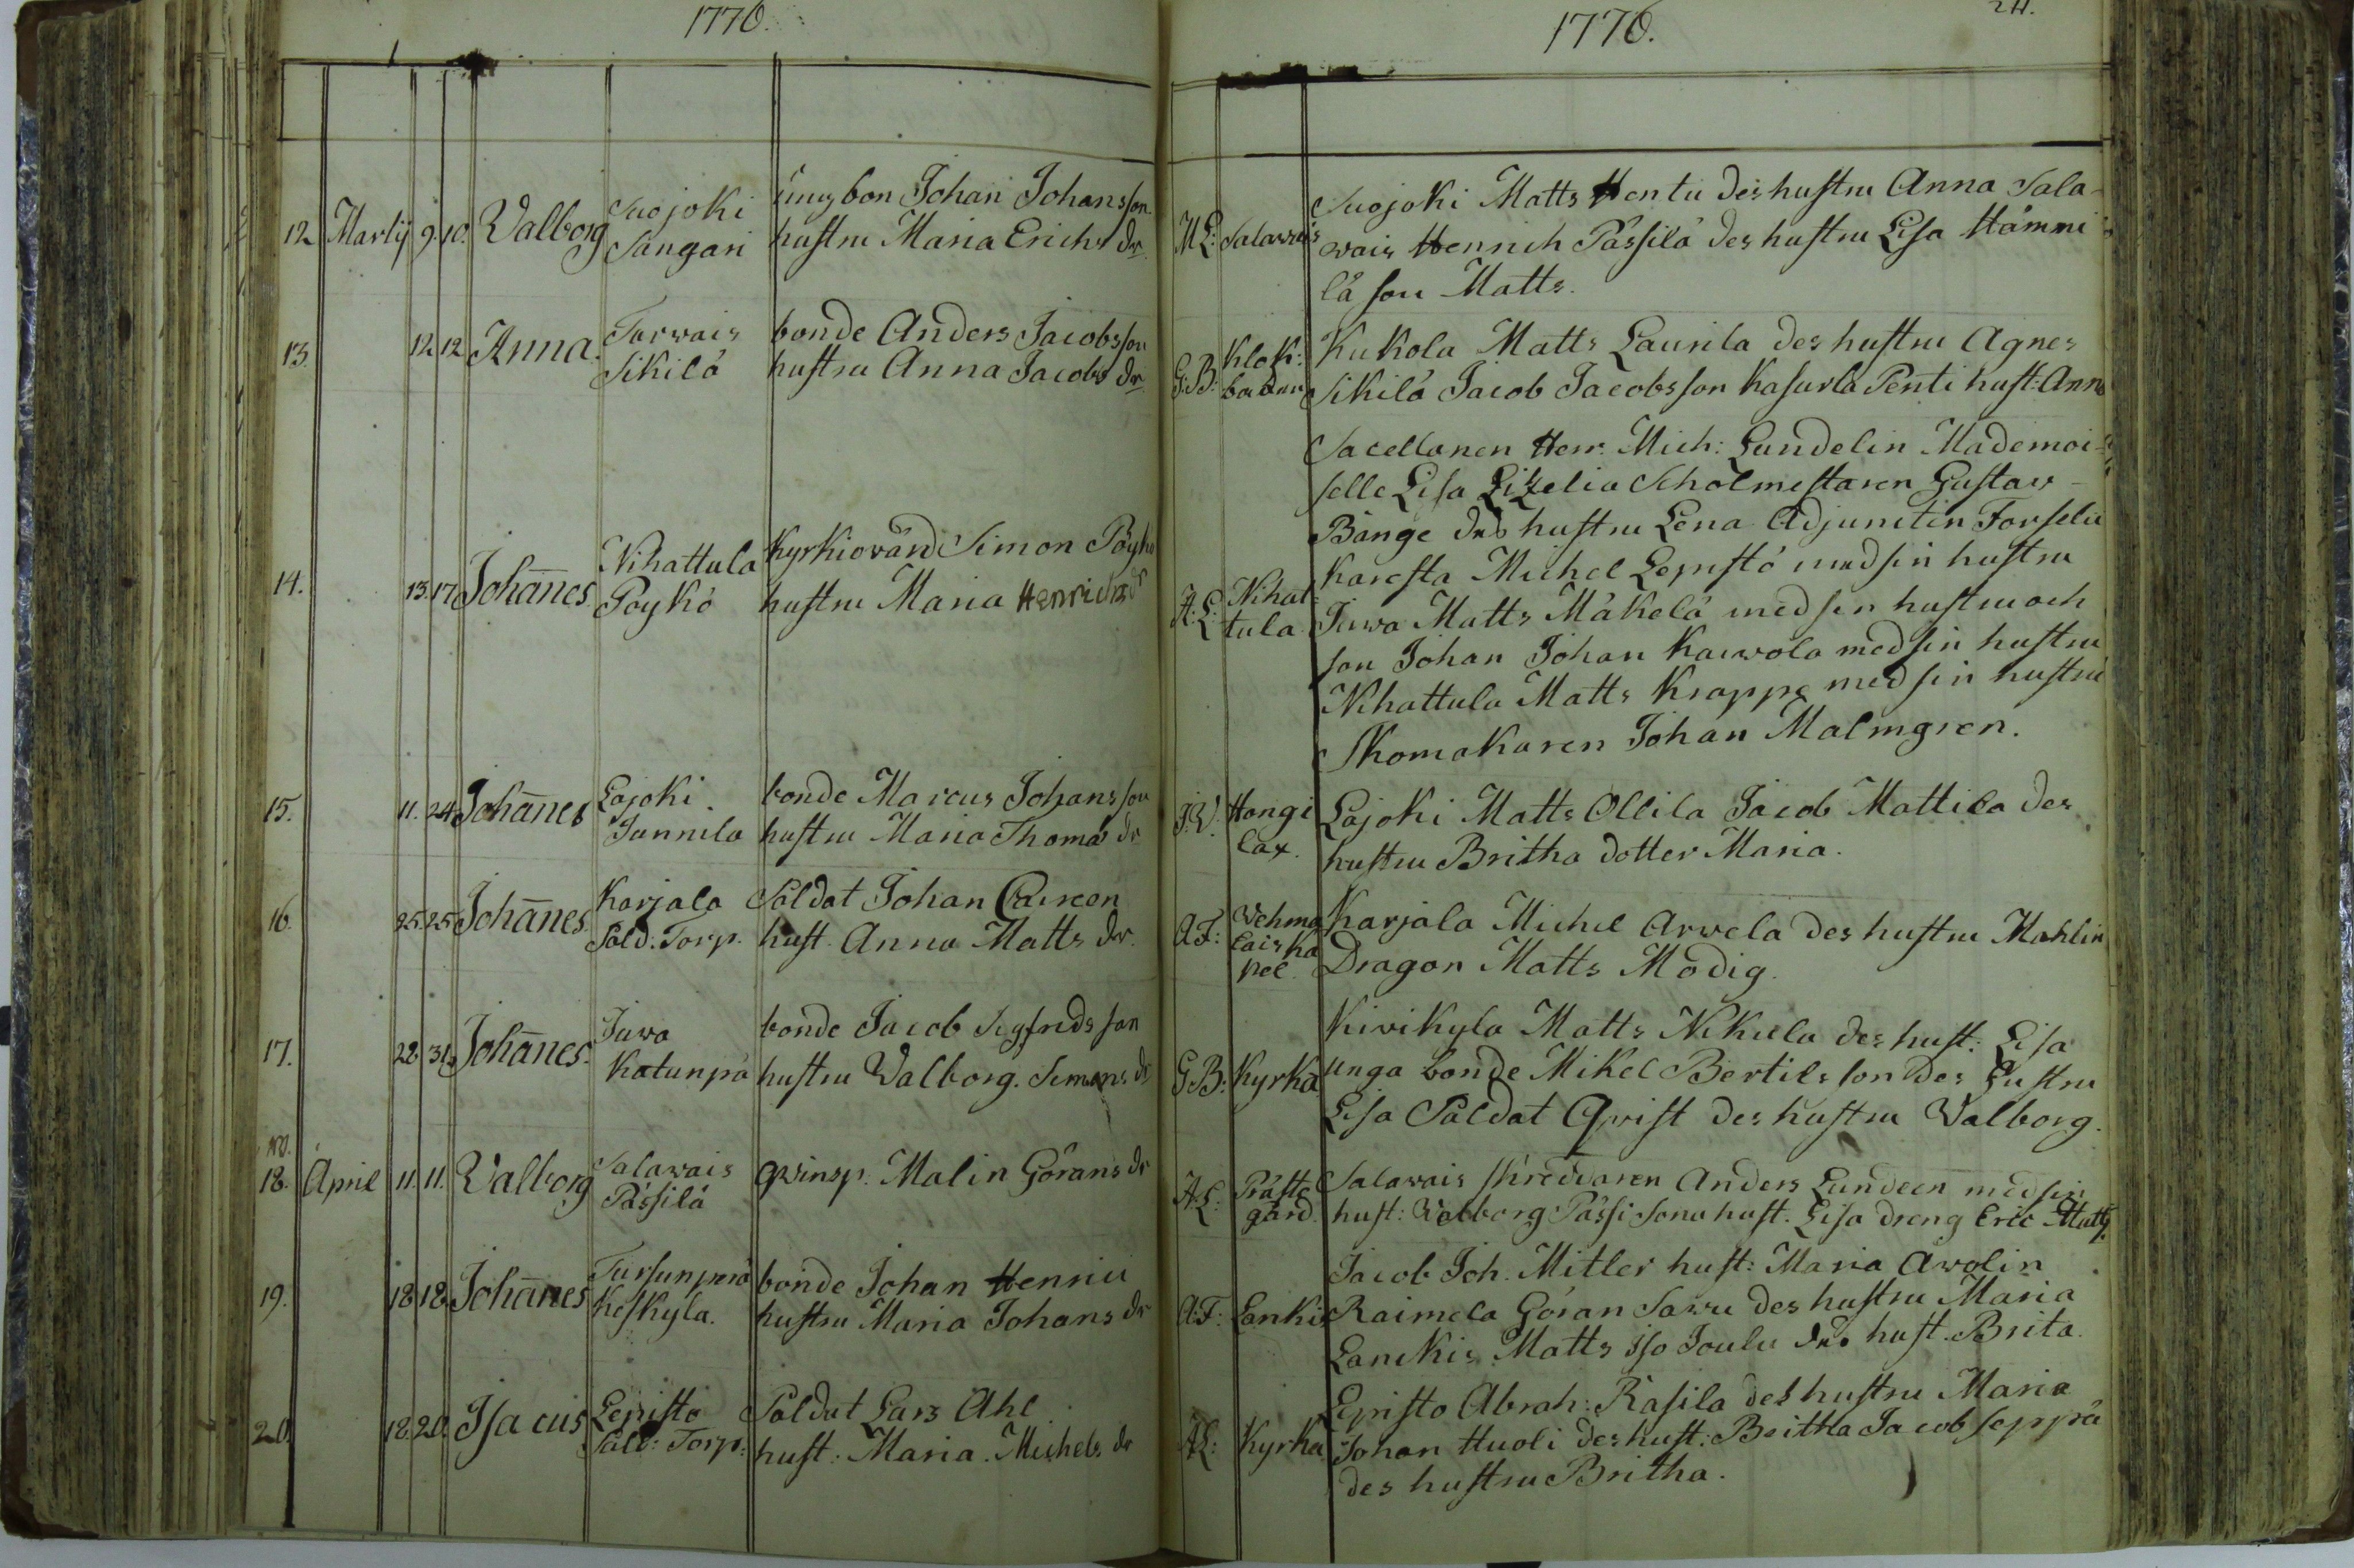 1776.
12 Martij 9. 10. Valborg Suojoki Sangari
ung bon Johan Johansson
hustru Maria Erichs dr
13. 12 12 Anna. Tarvais Sikilä
bonde Anders Jacobsson
hustru Anna Jacobs dr
14. 13. 17 Johannes. Nihattula Poykö
Kyrkiovärd Simon Pöykö
hustru Maria Henrichs dr
15. 11. 24 Johannes Lajoki. Junnila
bonde Marcus Johansson
hustru Maria Thomas dr
16. 25 25 Johannes. Karjala Sold. Torp.
Soldat Johan
hust. Anna Matts dr.
17. 28 31. Johannes. Juva Katunpä
bonde Jacob Sigfridsson
hustru Valborg. Simons dr
18. April 11. 11. Valborg Salavais Pässilä
Qvinsp. Malin Görans dr
19. 18 18 Johannes Tursunperä Keskyla.
bonde Johan Henrici
hustru Maria Johans dr
20. 18. 20. Isacus Lepistö Sald: Torp:
Soldat Lars Ahl
hust: Maria. Michels dr
1776.
24.
M L: Salavais
Suojoki Matts Hentu des hustru Anna Sala-
vais Henrich Pässilä des hustru Lisa Hämmi
lä son Matts.
G: B: Klok: badaren
Kukola Matts Laurila des hustru Agnes
Sikilä Jacob Jacobsson Kasurla Penti hust: Anna
A: L: Nihat tula
Sacellanen Herr. Mich: Lundelin Mademoi-
selle Lisa Lizelia Scholmestaren Gustav
Bänge des hustru Lena Adjunctin Forselia
Karesta Michel Lepistö med sin hustru
Juva Matts Mäkelä med sin hustru och
son Johan Johan Kaivola med sin hustru
Nihattula Matts Krappe med sin hustru
Skomakaren Johan Malmgren.
J: V. Hangi lax.
Lajoki Matts Ollila Jacob Mattila des
hustru Britha dotter Maria.
A F: Vehma lais ka pel.
Karjala Michel Arvela des hustru Mahlin
Dragon Matts Modig.
G B: Kyrka
Kivikyla Matts Nikula des hust: Lisa
unga bonde Mikel Bertilsson des hustru
Lisa Saldat Qvist des hustru Valborg.
A L: Präste gård.
Salavais skreddaren Anders Lundeen med sin
hust: Valborg Pässi Sona hust. Lisa dreng Eric Matts.
A. F: Lankis
Jacob Joh. Mitler hust: Maria Avolin
Raimela Göran Savu des hustru Maria
Lanckis Matts iso Joulu des hust. Brita.
A L: Kyrka
Lepisto Abrah: Rasila des hustru Maria
Johan Huoli des hust: Britha Jacob Seppä
des hustru Britha.